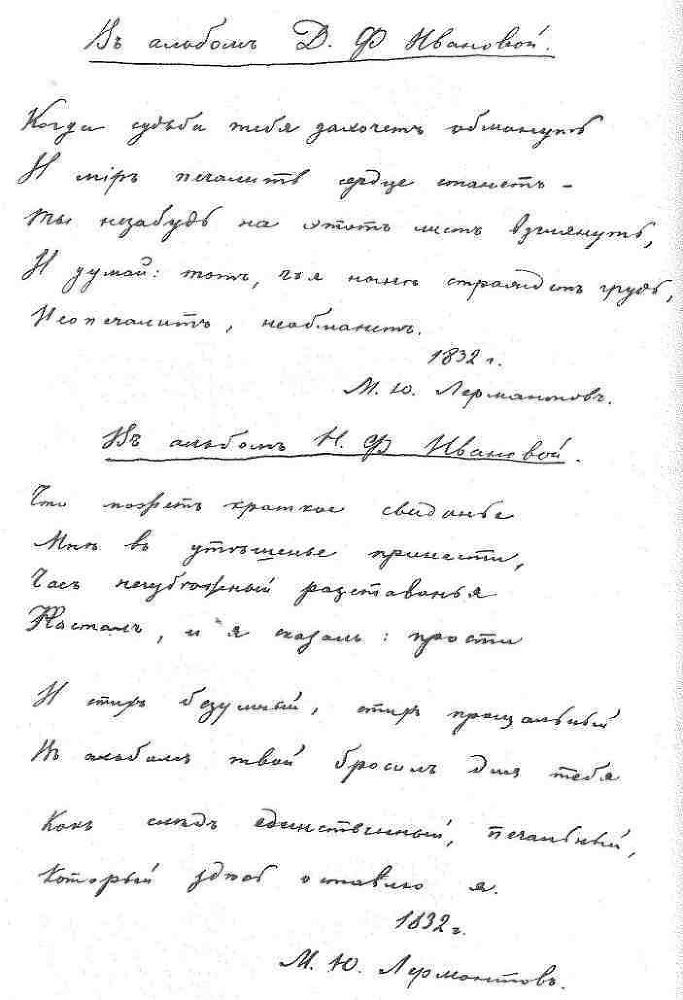 Въ альбомъ Д. Ф Ивановой.
Когда судьба тебя захочетъ обмануть
И міръ печалить сердце станетъ –
Ты незабудь на этотъ листъ взглянуть,
И думай: тотъ, чья нынѣ страждетъ грудь,
Неопечалитъ, необманетъ.
1832 г.
М. Ю. Лермантовъ.
Въ альбомъ Н. Ф Ивановой.
Что можетъ краткое свиданье
Мнѣ въ утѣшенье принести,
Часъ неизбѣжный разставанья
Насталъ, и я сказалъ: прости
И стихъ безумный, стихъ прощальный
Въ альбомъ твой бросилъ для тебя
Какъ слѣдъ единственный, печальный,
Который здѣсь оставлю я.
1832 г.
М. Ю. Лермонтовъ.